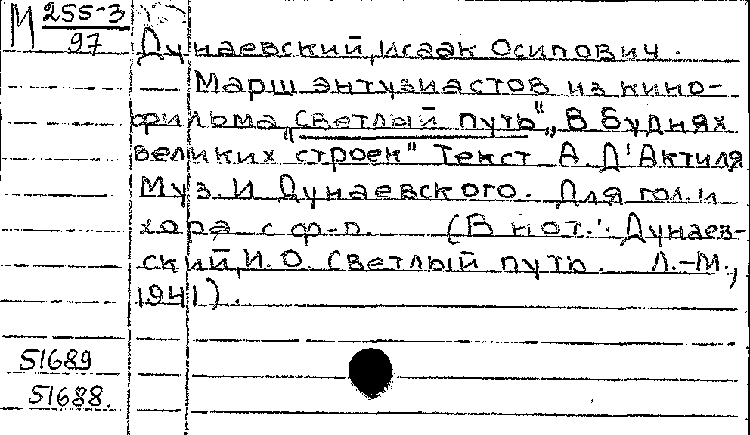 М 255-3
97
Дунаевский, Исаак Осипович.
Марш энтузиастов из кино-
фильма „Светлый путь" „В буднях
великих строек" Текст А. Д'Актиля
Муз. И Дунаевского. Для гол. и
хора с ф-п. (В нот.: Дунаев-
ский, И. О. Светлый путь. Л.-М.,
1941).
51689
51688.